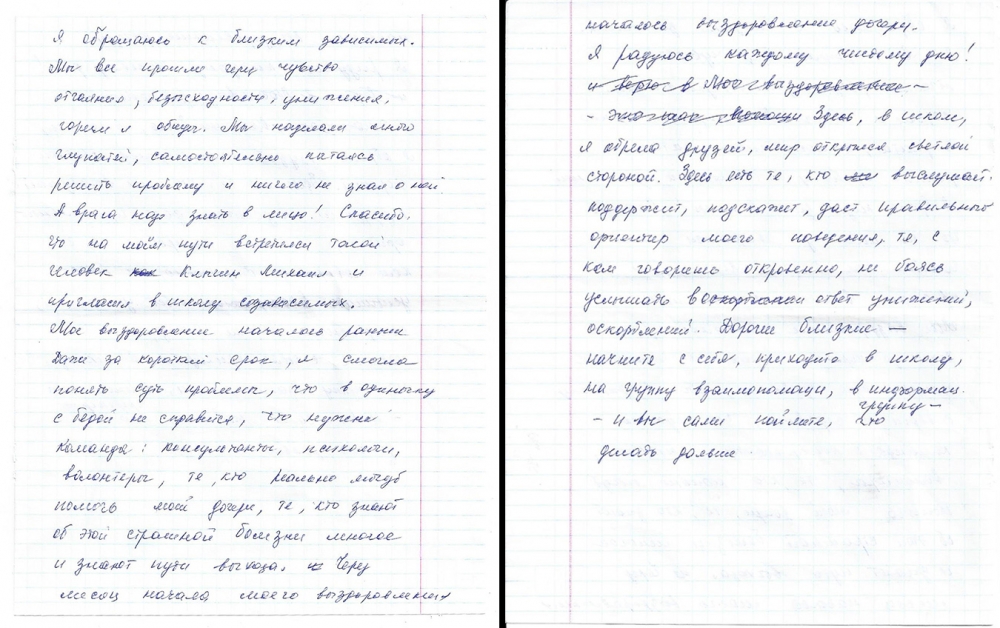 Я обращаюсь к близким зависимых.
Мы все прошли через чувство
отчаяния, безысходности, унижения,
горечи и обиды. Мы наделали много
глупостей, самостоятельно пытаясь
решить проблему и ничего не зная о ней
А врага надо знать в лицо! Спасибо,
что на моём пути встретился такой
человек как Клычин Михаил и
пригласил в школу созависимых.
Мое выздоровление началось раньше
Даже за короткий срок, я смогла
понять суть проблемы, что в одиночку
с бедой не справится, что нужена
команда: консультанты, психологи,
волонтеры, те, кто реально могут
помочь моей дочери, те, кто знают
об этой страшной болезни многое
и знают пути выхода. Через
месяц начала моего выздоровления
началось выздоровление дочери.
Я радуюсь каждому чистому дню!
и верю в Мое выздоровление –
Здесь, в школе,
я обрела друзей, мир открылся светлой
стороной. Здесь есть те, кто выслушает.
поддержит, подскажет, даст правильный
ориентир моего поведения, те, с
кем говоришь откровенно, не боясь
услышать в ответ унижений,
оскорблений. Дорогие близкие —
начните с себя, приходите в школу,
на группу взаимопомощи, в информац.
группу –
– и вы сами поймете, что
делать дальше.